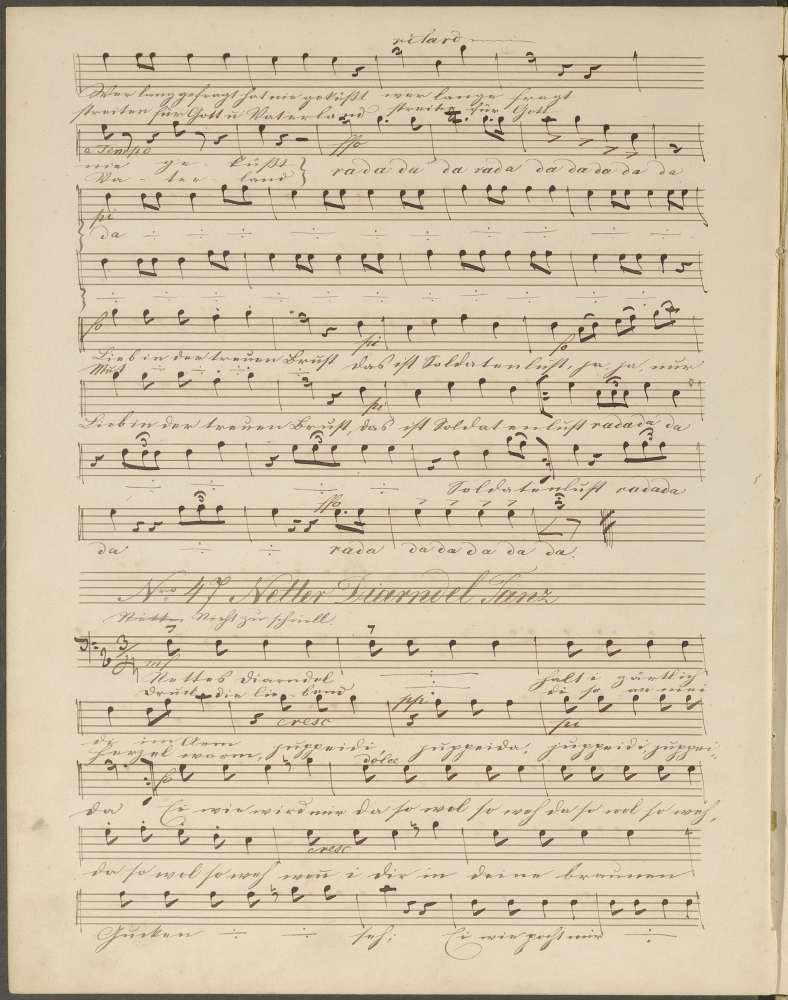 ritard
Wer lang gefragt hat nie geküßt wer lange fragt
streiten für Gott u Vaterland streiten für Gott
a Tempo ffo
nie ge- küßt } rada da da rada da da da da da
Va- ter- land
pi
da ÷ ÷ ÷ ÷ ÷ ÷ ÷ ÷
÷ ÷ ÷ ÷ ÷ ÷ ÷ ÷
fo pi fo
Lieb in der treuen Brust das ist Soldatenlust, ja, ja, nur
Mut ÷ ÷ ÷
pi
Lieb in der treuen Brust, das ist Soldatenlust radada da
3 3 3
÷ ÷ ÷ ÷ Soldatenlust radada
3 ffo 3
da ÷ ÷ rada da da da da da da.
Nro 47 Netter Diarndel Tanz
Nicht zu schnell.
3/4 mf
Nettes Diarndel ÷ halt i zärtlich
Druck die lie- bend ÷ di so an mei
cresc pp pi
di im Arm
herzel warm, juppeidi, juppeida, juppeidi, juppei-
fo dolce
da Ei wie wird mir da so wol so weh da so wol so weh,
cresc
da so wol so weh wen i dir in deine braunen
Gucken ÷ ÷ seh; Ei wie pocht mir ÷